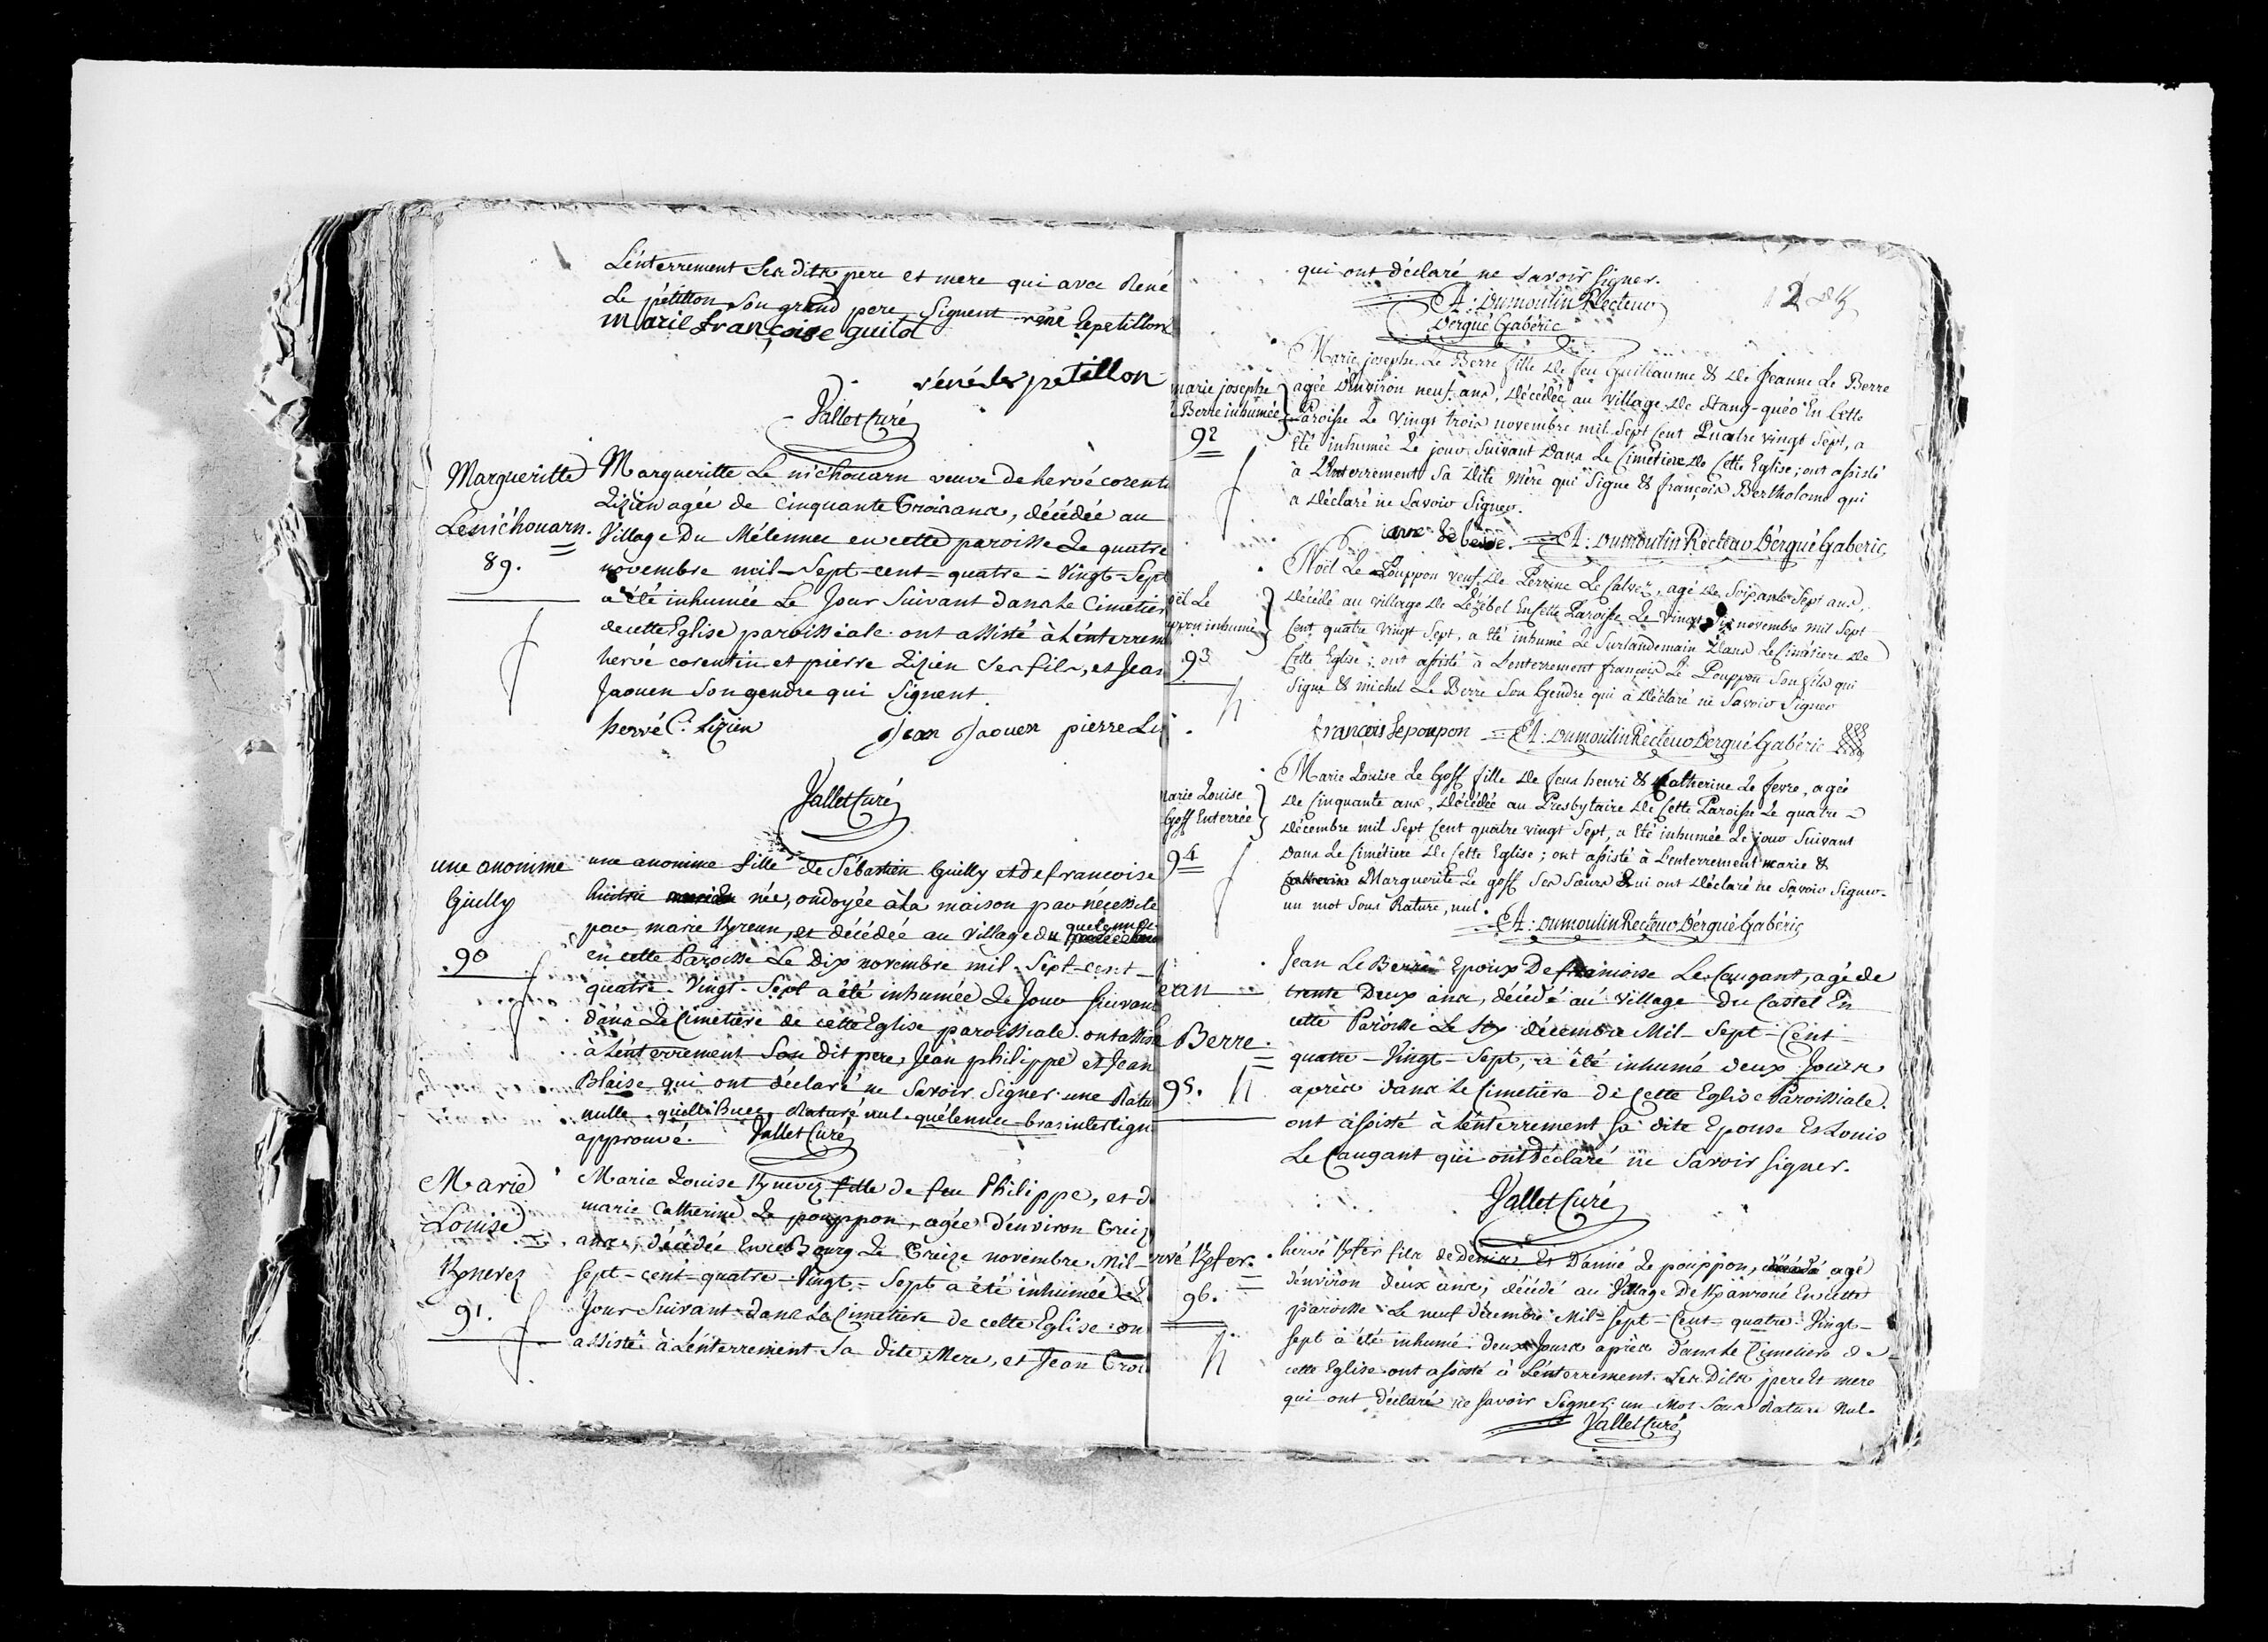 L'enterrement Ses dits pere et mere qui avec René
Le pétillon Son grand pere, Signent rené Lepetillon
marie françoise guitot
réné le petillon
Vallet Curé
Margueritte
Le nichouarn.
89.
Margueritte Le nichouarn veuve de hervé corenti
Lizien agée de Cinquante Trois ans, décédée au
Village Du Mélennec en cette paroisse Le quatre
novembre mil-Sept-cent-quatre-Vingt-Sept
a été inhumée Le Jour Suivant dans Le Cimetier
de cette Eglise paroissiale. ont assisté à L'enterrem
hervé corentin et pierre Lizien Ses fils, et Jean
Jaouen Son gendre qui Signent.
hervé C. Lizien Jean Jaouen pierre Liz
Vallet Curé
une anonime
Guilly
90
une anonime fille de Sébastien Guilly et de francoise
née, ondoyée à La maison par nécessité
par marie Kreun, et décédée au village du
quelennec
en cette Paroisse Le Dix novembre mil-Sept-cent-
quatre-Vingt-Sept a été inhumée Le Jour Suivant
dans Le Cimetiere de cette Eglise paroissiale. ont assisté
à L'enterrement Son dit pere, Jean philippe et Jean
Blaise qui ont déclaré ne Savoir Signer. une Ratu
nulle. Raturé nul. quélennec-bras interlign
approuvé. Vallet Curé
Marie
Louise
Knevez
91.
Marie Louise Knevez fille de feu Philippe, et d
marie Catherine Le pouppon, agée d'environ Treiz
ans, décédée En ce Bourg Le Treize novembre Mil-
sept-cent-quatre-Vingt-Sept a été inhumée L
Jour Suivant dans Le Cimetiere de cette Eglise. on
assisté à L'enterrement Sa dite Mere, et Jean Croi
qui ont déclaré ne savoir signer.
A: Dumoulin Recteur
Dergué Gabéric
marie josephe
Berre inhumée
92
Marie josephe Le Berre fille de feu Guillaume & de Jeanne Le Berre
agée d'environ neuf ans, décédée au village de Stang-quéo En Cette
Paroisse Le Vingt trois novembre mil Sept Cent Quatre vingt Sept, a
été inhumée Le jour Suivant dans Le Cimétiere de Cette Eglise; ont assisté
à L'enterrement Sa dite mère qui Signe & françois Bertholome qui
a déclaré ne Savoir Signer.
A: Dumoulin Recteur Dergué Gaberic
ël Le
ppon inhumé
93
Noël Le Pouppon veuf de Perrine Le Calvez, agé de Soixante Sept ans,
décédé au village de Lezebel En Cette Paroisse Le Vingt Six novembre mil Sept
Cent quatre Vingt Sept, a été inhumé Le Surlandemain Dans Le Cimétiere de
Cette Eglise; ont assisté à L'enterrement françois Le Pouppon Son fils qui
Signe & michel Le Berre Son Gendre qui a déclaré ne Savoir Signer
francois lepoupon A: Dumoulin Recteur Dergué Gabéric
Marie Louise
Goff Enterrée
94
Marie Louise Le Goff fille de feus henri & Catherine Le fevre, agée
de Cinquante ans, décédée au Presbytaire de Cette Paroisse Le quatre
décembre mil Sept Cent quatre vingt Sept, a été inhumée Le jour Suivant
dans Le Cimétiere de Cette Eglise; ont assisté à L'enterrement marie &
Catherine Marguerite Le goff Ses Sœurs Qui ont déclaré ne Savoir Signer.
un mot Sous Rature, nul.
A: Dumoulin Recteur Dergué Gabéric
ean
Berre.
95.
Jean Le Berre Epoux De francoise Le Caugant, agé de
trente Deux ans, décédé au village du Castel En
cette Paroisse Le Six décembre Mil-Sept-Cent-
quatre-Vingt-Sept, a été inhumé deux Jours
après dans Le Cimetiere de Cette Eglise Paroissiale.
ont assisté à L'enterrement sa dite Epouse Et Louis
Le Caugant qui ont déclaré ne savoir signer.
Vallet Curé
rvé Kfer.
96.
hervé Kfer fils de Denis Et D'anne Le pouppon, agé
d'environ deux ans, décédé au Village De Kanroué En cette
paroisse Le neuf décembre Mil-sept-Cent-quatre-Vingt-
sept a été inhumé deux Jours après dans Le Cimetiere de
cette Eglise. ont assisté à L'enterrement Ses Dits pere Et mere
qui ont déclaré ne savoir Signer. un Mot Sous Rature Nul.
Vallet Curé